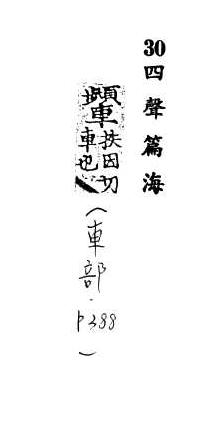 30四聲篇海
扶因切
車也
(車部.P388)